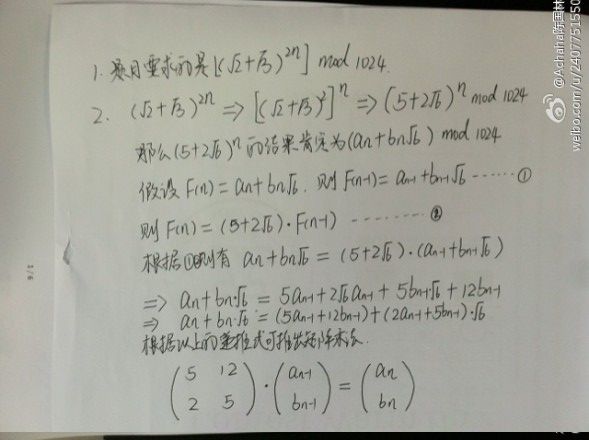 1. 题目要求的是[(√2+√3)^2n] mod 1024.
2. (√2+√3)^2n ⇒ [(√2+√3)^2]^n ⇒ (5+2√6)^n mod 1024
那么(5+2√6)^n的结果肯定为(an+bn√6) mod 1024
假设 F(n) = an+bn√6. 则 F(n-1) = an-1+bn-1√6 ------ ①
则 F(n) = (5+2√6)·F(n-1) -------- ②
根据①②则有 an+bn√6 = (5+2√6)·(an-1+bn-1√6)
⇒ an+bn·√6 = 5an-1+2√6an-1 + 5bn-1√6 + 12bn-1
⇒ an+bn·√6 = (5an-1+12bn-1)+(2an-1+5bn-1)·√6
根据以上的递推式可推出矩阵乘法.
(5 12) · (an-1) = (an)
(2 5) (bn-1) (bn)
1/6
@Achaha陈国林
weibo.com/u/2407751550